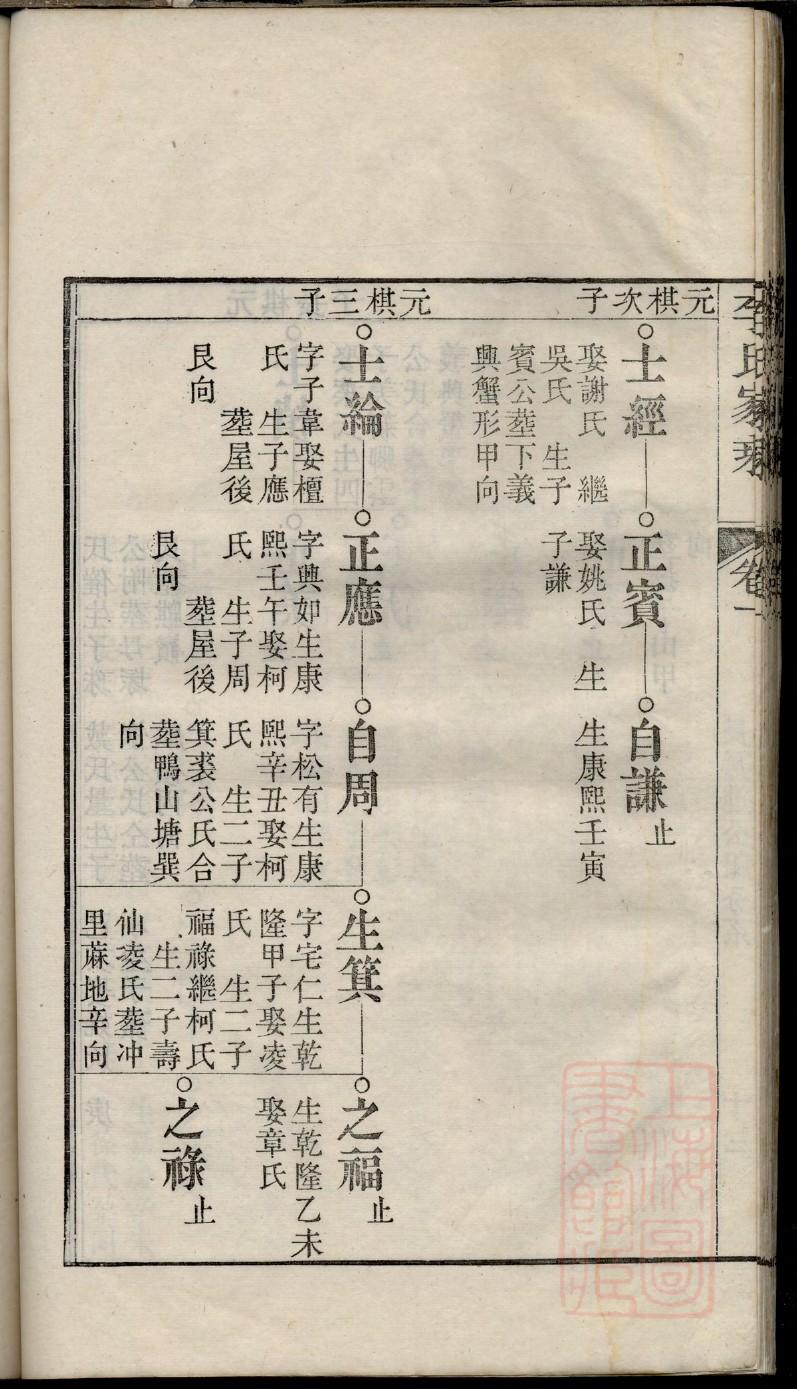 李氏家
卷一
元棋次子
士經
娶謝氏 繼
吳氏 生子
賓公塟下義
興蟹形甲向
正賓
娶姚氏 生
子謙
自謙止
生康熙壬寅
元棋三子
士綸
字子韋娶檀
氏 生子應
塟屋後
艮向
正應
字興如生康
熙壬午娶柯
氏 生子周
塟屋後
艮向
自周
字松有生康
熙辛丑娶柯
氏 生二子
箕裘公氏合
塟鴨山塘巽
向
生箕
字宅仁生乾
隆甲子娶凌
氏 生二子
福祿繼柯氏
生二子壽
仙凌氏塟冲
里蔴地辛向
之福止
生乾隆乙未
娶章氏
之祿止
上海圖書館藏